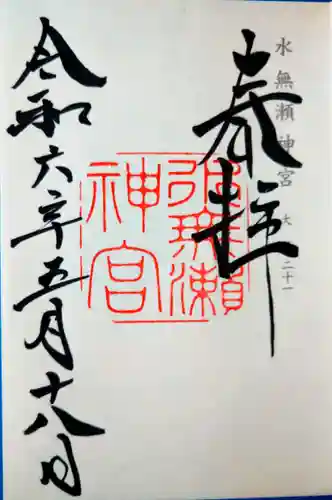 水無瀬神宮 大 二十一
奉拝
水無瀬
神宮
令和六年五月十八日